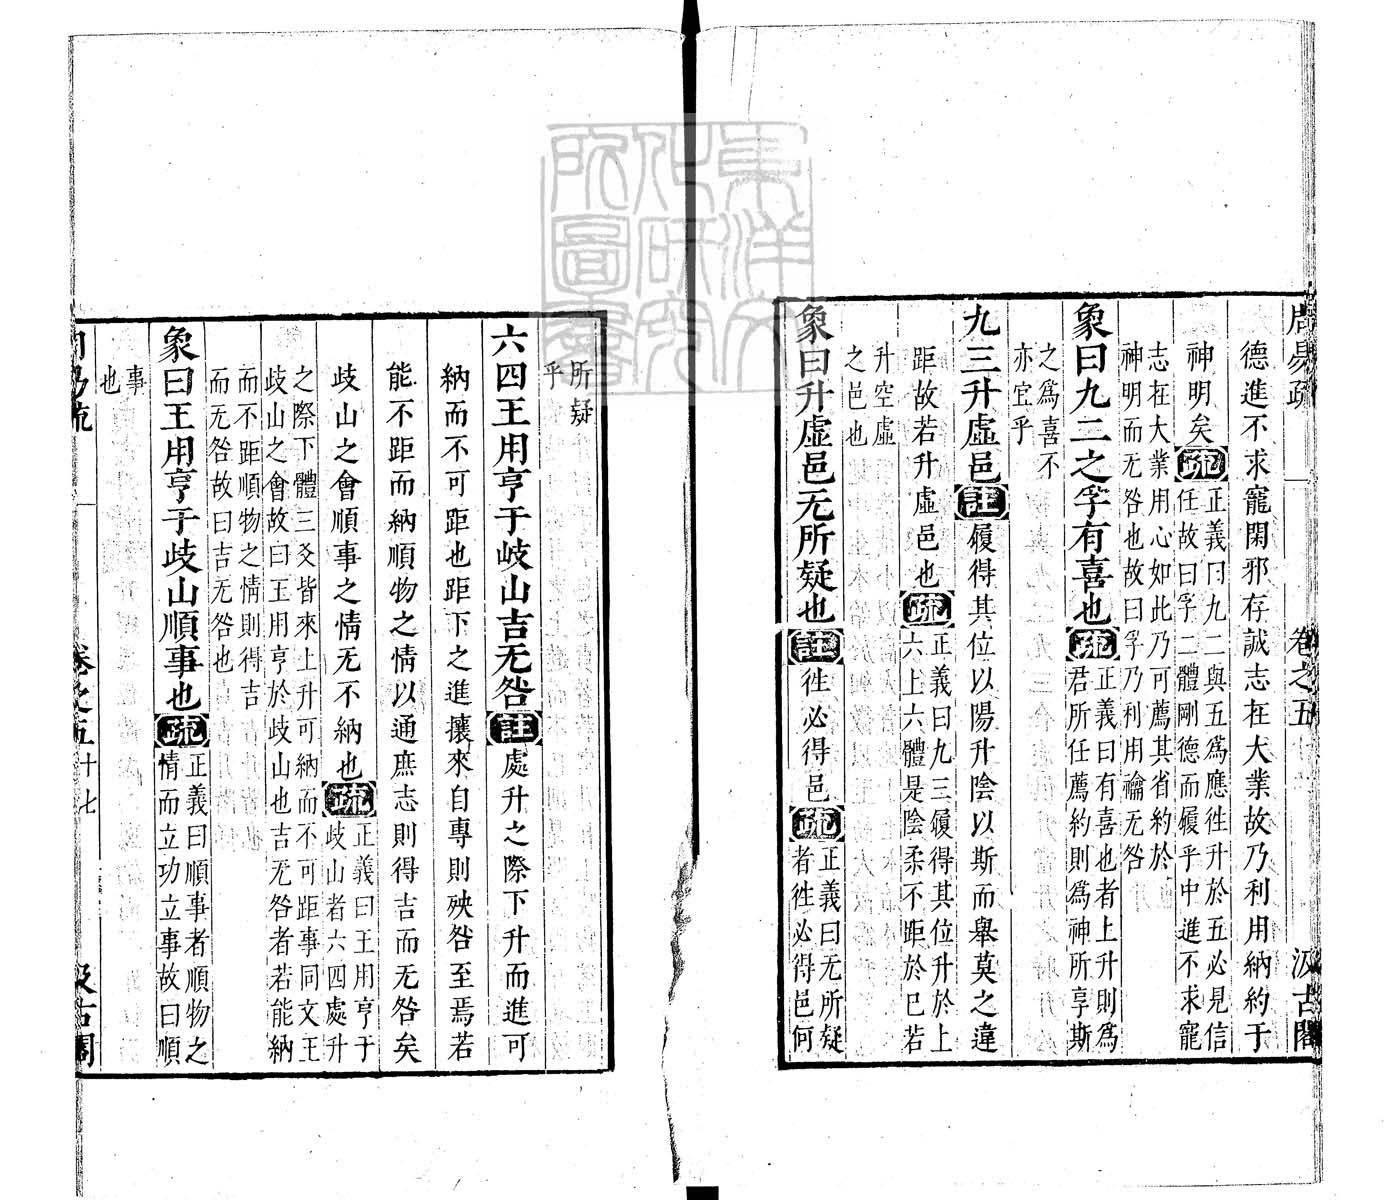 周易疏 卷之五 汲古閣
德進不求寵閑邪存誠志在大業故乃利用納約于
神明矣疏
正義曰九二與五爲應徃升於五必見信
任故曰孚二體剛德而履乎中進不求寵
志在大業用心如此乃可薦其省約於
神明而无咎也故曰孚乃利用禴无咎
象曰九二之孚有喜也疏
正義曰有喜也者上升則爲
君所任薦約則爲神所享斯
之爲喜不
亦宜乎
九三升虛邑註履得其位以陽升陰以斯而舉莫之違
距故若升虛邑也疏
正義曰九三履得其位升於上
六上六體是陰柔不距於已若
升空虛
之邑也
象曰升虛邑无所疑也註徃必得邑疏
正義曰无所疑
者徃必得邑何
所疑
乎
六四王用亨于岐山吉无咎註處升之際下升而進可
納而不可距也距下之進攘來自專則殃咎至焉若
能不距而納順物之情以通庶志則得吉而无咎矣
歧山之會順事之情无不納也疏
正義曰王用亨于
歧山者六四處升
之際下體三爻皆來上升可納而不可距事同文王
歧山之會故曰王用亨於歧山也吉无咎者若能納
而不距順物之情則得吉
而无咎故曰吉无咎也
象曰王用亨于歧山順事也疏
正義曰順事者順物之
情而立功立事故曰順
事
也
卷之五 十七 汲古閣
東洋文
化研究
所圖書